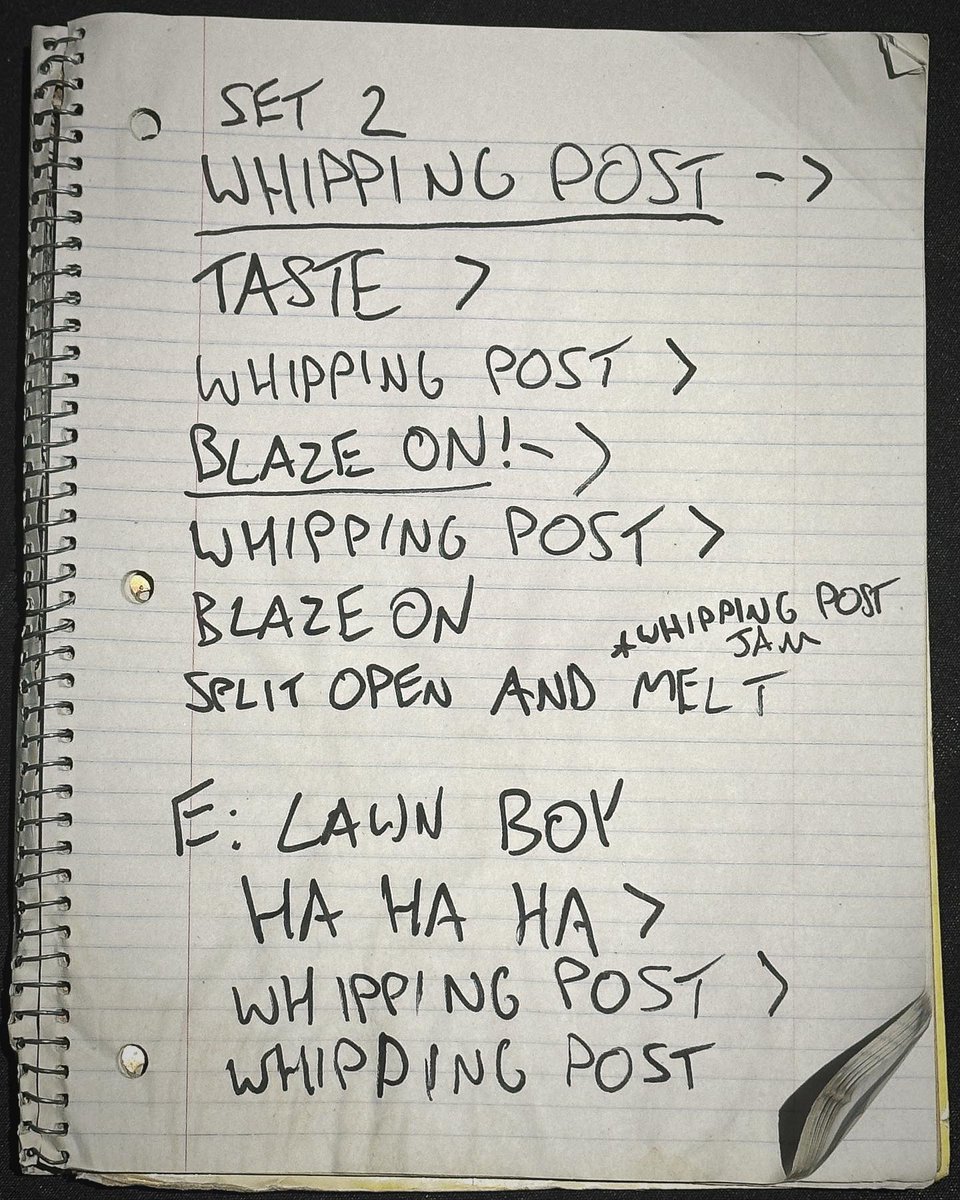 SET 2
WHIPPING POST ->
TASTE >
WHIPPING POST >
BLAZE ON! ->
WHIPPING POST >
BLAZE ON
*WHIPPING POST
JAM
SPLIT OPEN AND MELT
E: LAWN BOY
HA HA HA >
WHIPPING POST >
WHIPPING POST